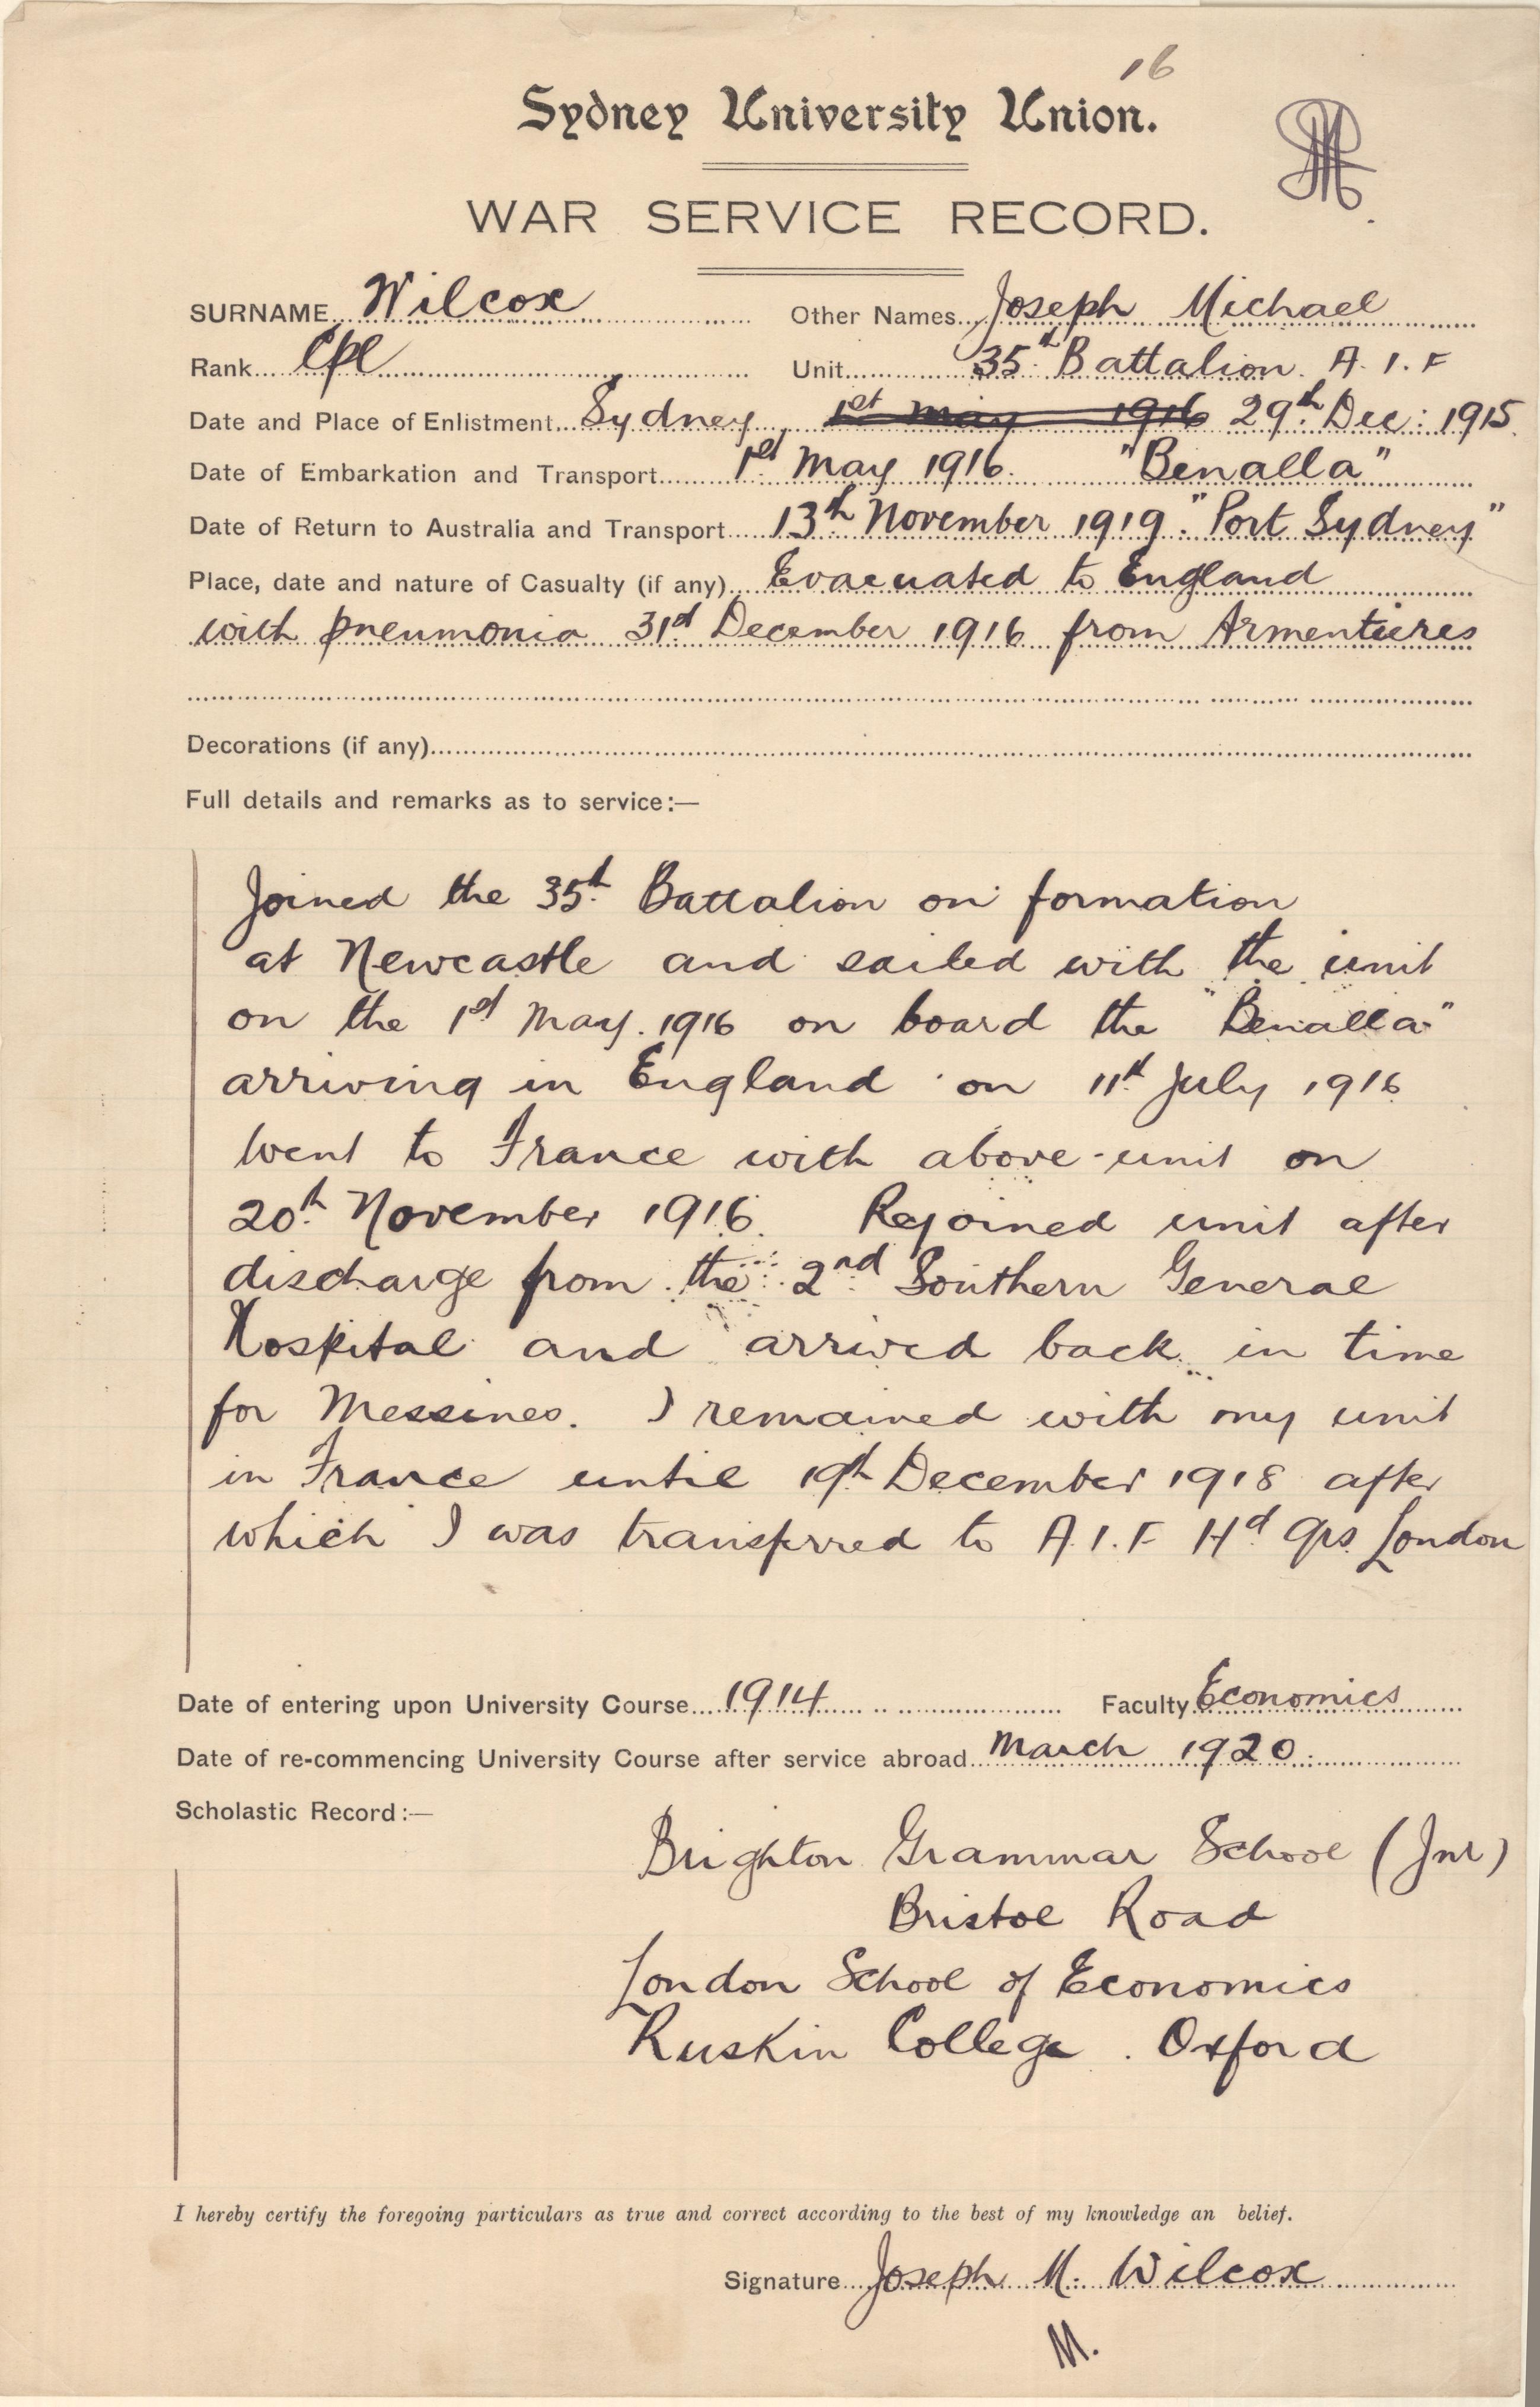 16
Sydney University Union.
WAR SERVICE RECORD.
SURNAME Wilcox Other Names Joseph Michael
Rank Cpl Unit 35th Battalion. A.I.F
Date and Place of Enlistment Sydney, 1st May 1916 29th Dec: 1915.
Date of Embarkation and Transport 1st May 1916. "Benalla"
Date of Return to Australia and Transport 13th November 1919. "Port Sydney"
Place, date and nature of Casualty (if any) Evacuated to England
with pneumonia 31st December 1916 from Armentieres
Decorations (if any)
Full details and remarks as to service:—
Joined the 35th Battalion on formation
at Newcastle and sailed with the unit
on the 1st May. 1916 on board the "Benalla"
arriving in England on 11th July 1916
Went to France with above-unit on
20th November 1916. Rejoined unit after
discharge from the 2nd Southern General
Hospital and arrived back in time
for Messines. I remained with my unit
in France until 19th December 1918 after
which I was transferred to A.I.F Hd qrs. London
Date of entering upon University Course 1914 Faculty Economics
Date of re-commencing University Course after service abroad March 1920.
Scholastic Record:—
Brighton Grammar School (Jnr)
Bristol Road
London School of Economics
Ruskin College. Oxford
I hereby certify the foregoing particulars as true and correct according to the best of my knowledge an belief.
Signature Joseph M. Wilcox
M.